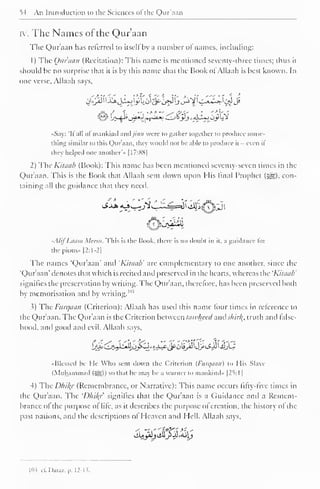 54 An Introduction to the Sciences of the Qur'aan
IV. The Names of the Qur'aan
The Qur'aan has referred to itself by a number of names, including:
1) The Qur'aan (Recitation): This name is mentioned seventy-three times; thus it
should be no surprise that it is by this name that the Book of Allaah is best known. In
one verse, Allaah says,
«Say: 'If all of mankind and jinn were to gather together to produce some-
thing similar to this Qur'aan, they would not be able to produce it – even if
they helped one another'» [17:88]
2) The Kitaab (Book): This name has been mentioned seventy-seven times in the
Qur'aan. This is the Book that Allaah sent down upon His final Prophet (ﷺ), con-
taining all the guidance that they need.
«Alif Laam Meem. This is the Book, there is no doubt in it, a guidance for
the pious» [2:1-2]
The names 'Qur'aan' and 'Kitaab' are complementary to one another, since the
'Qur'aan' denotes that which is recited and preserved in the hearts, whereas the 'Kitaab'
signifies the preservation by writing. The Qur'aan, therefore, has been preserved both
by memorisation and by writing.
3) The Furqaan (Criterion): Allaah has used this name four times in reference to
the Qur'aan. The Qur'aan is the Criterion between tawheed and shirk, truth and false-
hood, and good and evil. Allaah says,
«Blessed be He Who sent down the Criterion (Furqaan) to His Slave
(Muhammad (ﷺ)) so that he may be a warner to mankind» [25:1]
4) The Dhikr (Remembrance, or Narrative): This name occurs fifty-five times in
the Qur'aan. The 'Dhikr' signifies that the Qur'aan is a Guidance and a Remem-
brance of the purpose of life, as it describes the purpose of creation, the history of the
past nations, and the descriptions of Heaven and Hell. Allaah says,
cf. Daraz, p. 12-13.